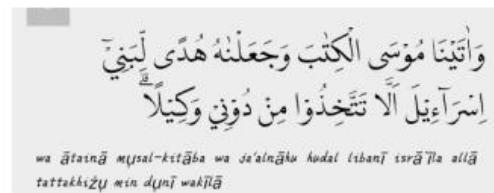 وَاٰتَيْنَا مُوْسَى الْكِتٰبَ وَجَعَلْنٰهُ هُدًى لِّبَنِيْٓ
اِسْرَاۤءِيْلَ اَلَّا تَتَّخِذُوْا مِنْ دُوْنِيْ وَكِيْلًاۗ
wa ātainā mụsal-kitāba wa ja'alnāhu hudal libanī isrā`īla allā
tattakhiżụ min dụnī wakīlā